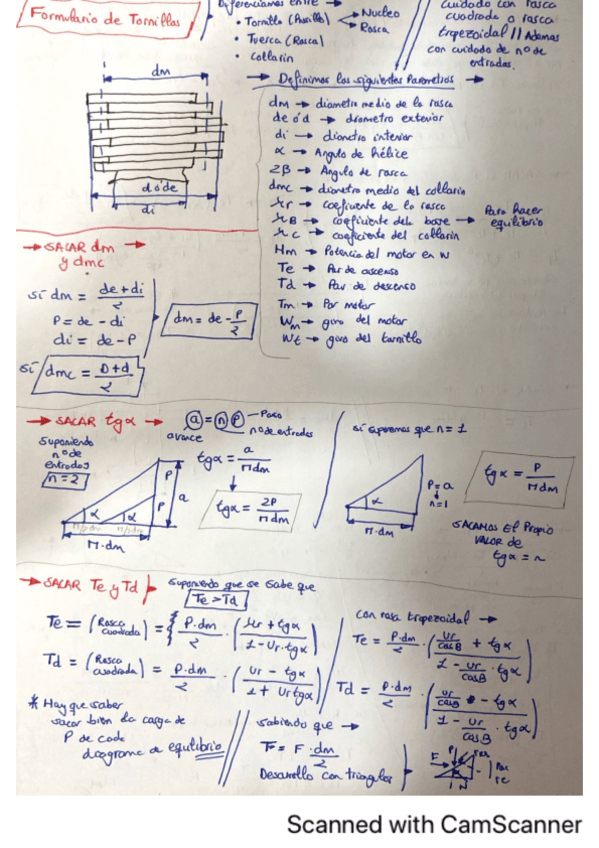 Formulario de Tornillos
Diferenciamos entre
• Tornillo (Husillo) → Nucleo
→ Rosca
• Tuerca (Rosca)
• collarin
cuidado con rosca
cuadrada o rosca
trapezoidal // Ademas
con cuidado de nº de
entradas.
→ Definimos los siguientes Parametros →
dm
d ó de
di
dm → diametro medio de la rosca
de ó d → diametro exterior
di → diametro interior
α → Angulo de hélice
2β → Angulo de rosca
dmc → diametro medio del collarin
μr → coeficiente de la rosca
μB → coeficiente dela base → Para hacer
equilibrio
μc → coeficiente del collarin
Hm → Potencia del motor en W
Te → Par de ascenso
Td → Par de descenso
Tm → Par motor
Wm → giro del motor
Wt → giro del tornillo
→ SACAR dm →
y dmc
si dm = de + di / 2
P = de - di
di = de - P
dm = de - P/2
si dmc = D+d / 2
→ SACAR tgα →
a = n P → Paso
nº de entradas
avance
suponiendo
nº de
entradas
n = 2
α α
P
P
a
π·dm
tgα = a / πdm
tgα = 2P / πdm
si suponemos que n = 1
α
P = a
n=1
π·dm
tgα = P / πdm
SACAMOS El Propio
VALOR DE
tgα = n
→ SACAR Te y Td
suponiendo que se sabe que
Te > Td
Te = (Rosca cuadrada) = P·dm / 2 · (μr + tgα / 1 - μr·tgα)
Td = (Rosca cuadrada) = P·dm / 2 · (μr - tgα / 1 + μr tgα)
con rosca trapezoidal →
Te = P·dm / 2 · (μr/cosβ + tgα / 1 - μr/cosβ · tgα)
Td = P·dm / 2 · (μr/cosβ - tgα / 1 - μr/cosβ · tgα)
* Hay que saber
sacar bien la carga de
P de cada
diagrama de equilibrio
sabiendo que →
T = F · dm / 2
Desarrollo con triangulos
F
P
N
Scanned with CamScanner